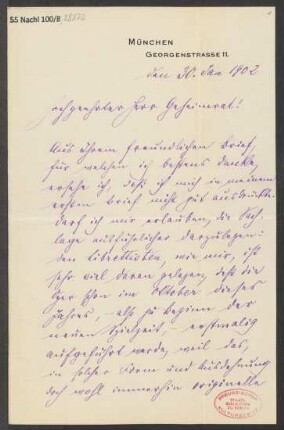 55 Nachl 100/B
MÜNCHEN
GEORGENSTRASSE 11.
den 30. Jan 1902
Hochgeehrter Herr Geheimrat!
Aus Ihrem freundlichen Brief,
für welchen ich bestens danke,
ersehe ich, daß ich mich in meinem
ersten Brief nicht gut ausdrückte.
darf ich mir erlauben, die Sach-
lage ausführlicher darzulegen:
den Librettisten, wie mir, ist
sehr viel daran gelegen, daß die
im Oktober dieses
Jahres, – also zu Beginn der
neuen Spielzeit, – erstmalig
aufgeführt werde, weil das
in solcher Form und Ausdehnung
doch wohl immerhin originelle